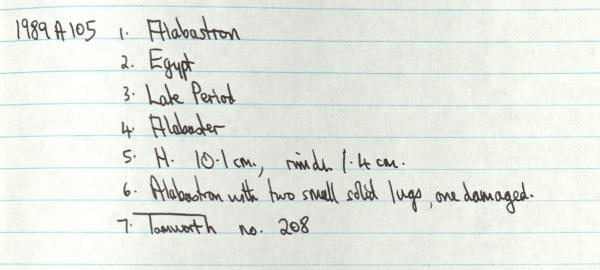 1989 A 105 1. Alabastron
2. Egypt
3. Late Period
4. Alabaster
5. H. 10.1 cm., 1.4 cm.
6. Alabastron with two small solid lugs, one damaged.
7. Tamworth no. 208